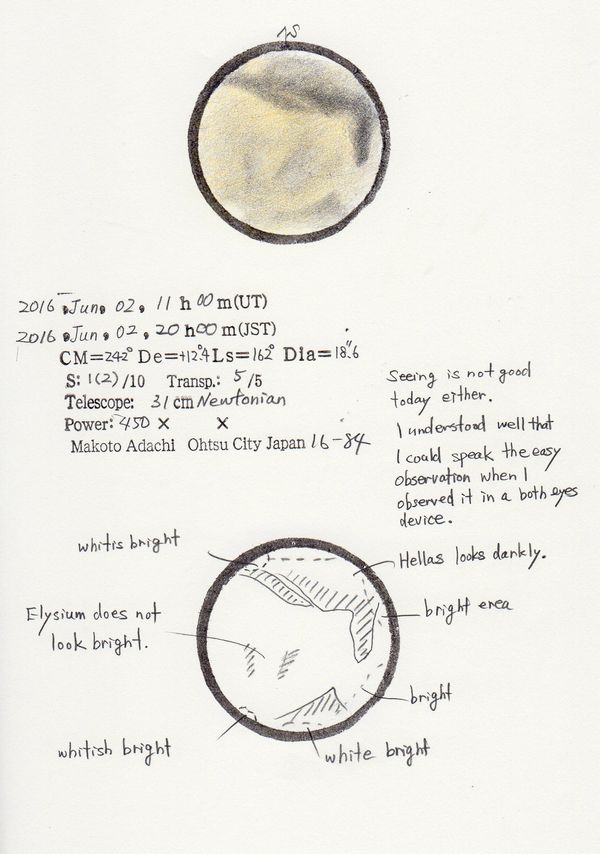 S
2016 . Jun. 02, 11 h 00 m(UT)
2016 . Jun. 02, 20 h 00 m(JST)
CM=242° De=+12°4 Ls=162° Dia=18".6
S: 1(2)/10 Transp.: 5/5
Telescope: 31 cm Newtonian
Power: 450 × ×
Makoto Adachi Ohtsu City Japan 16-84
Seeing is not good
today either.
I understood well that
I could speak the easy
observation when I
observed it in a both eyes
device.
whitis bright
Hellas looks darkly.
Elysium does not
look bright.
bright erea
bright
whitish bright
white bright